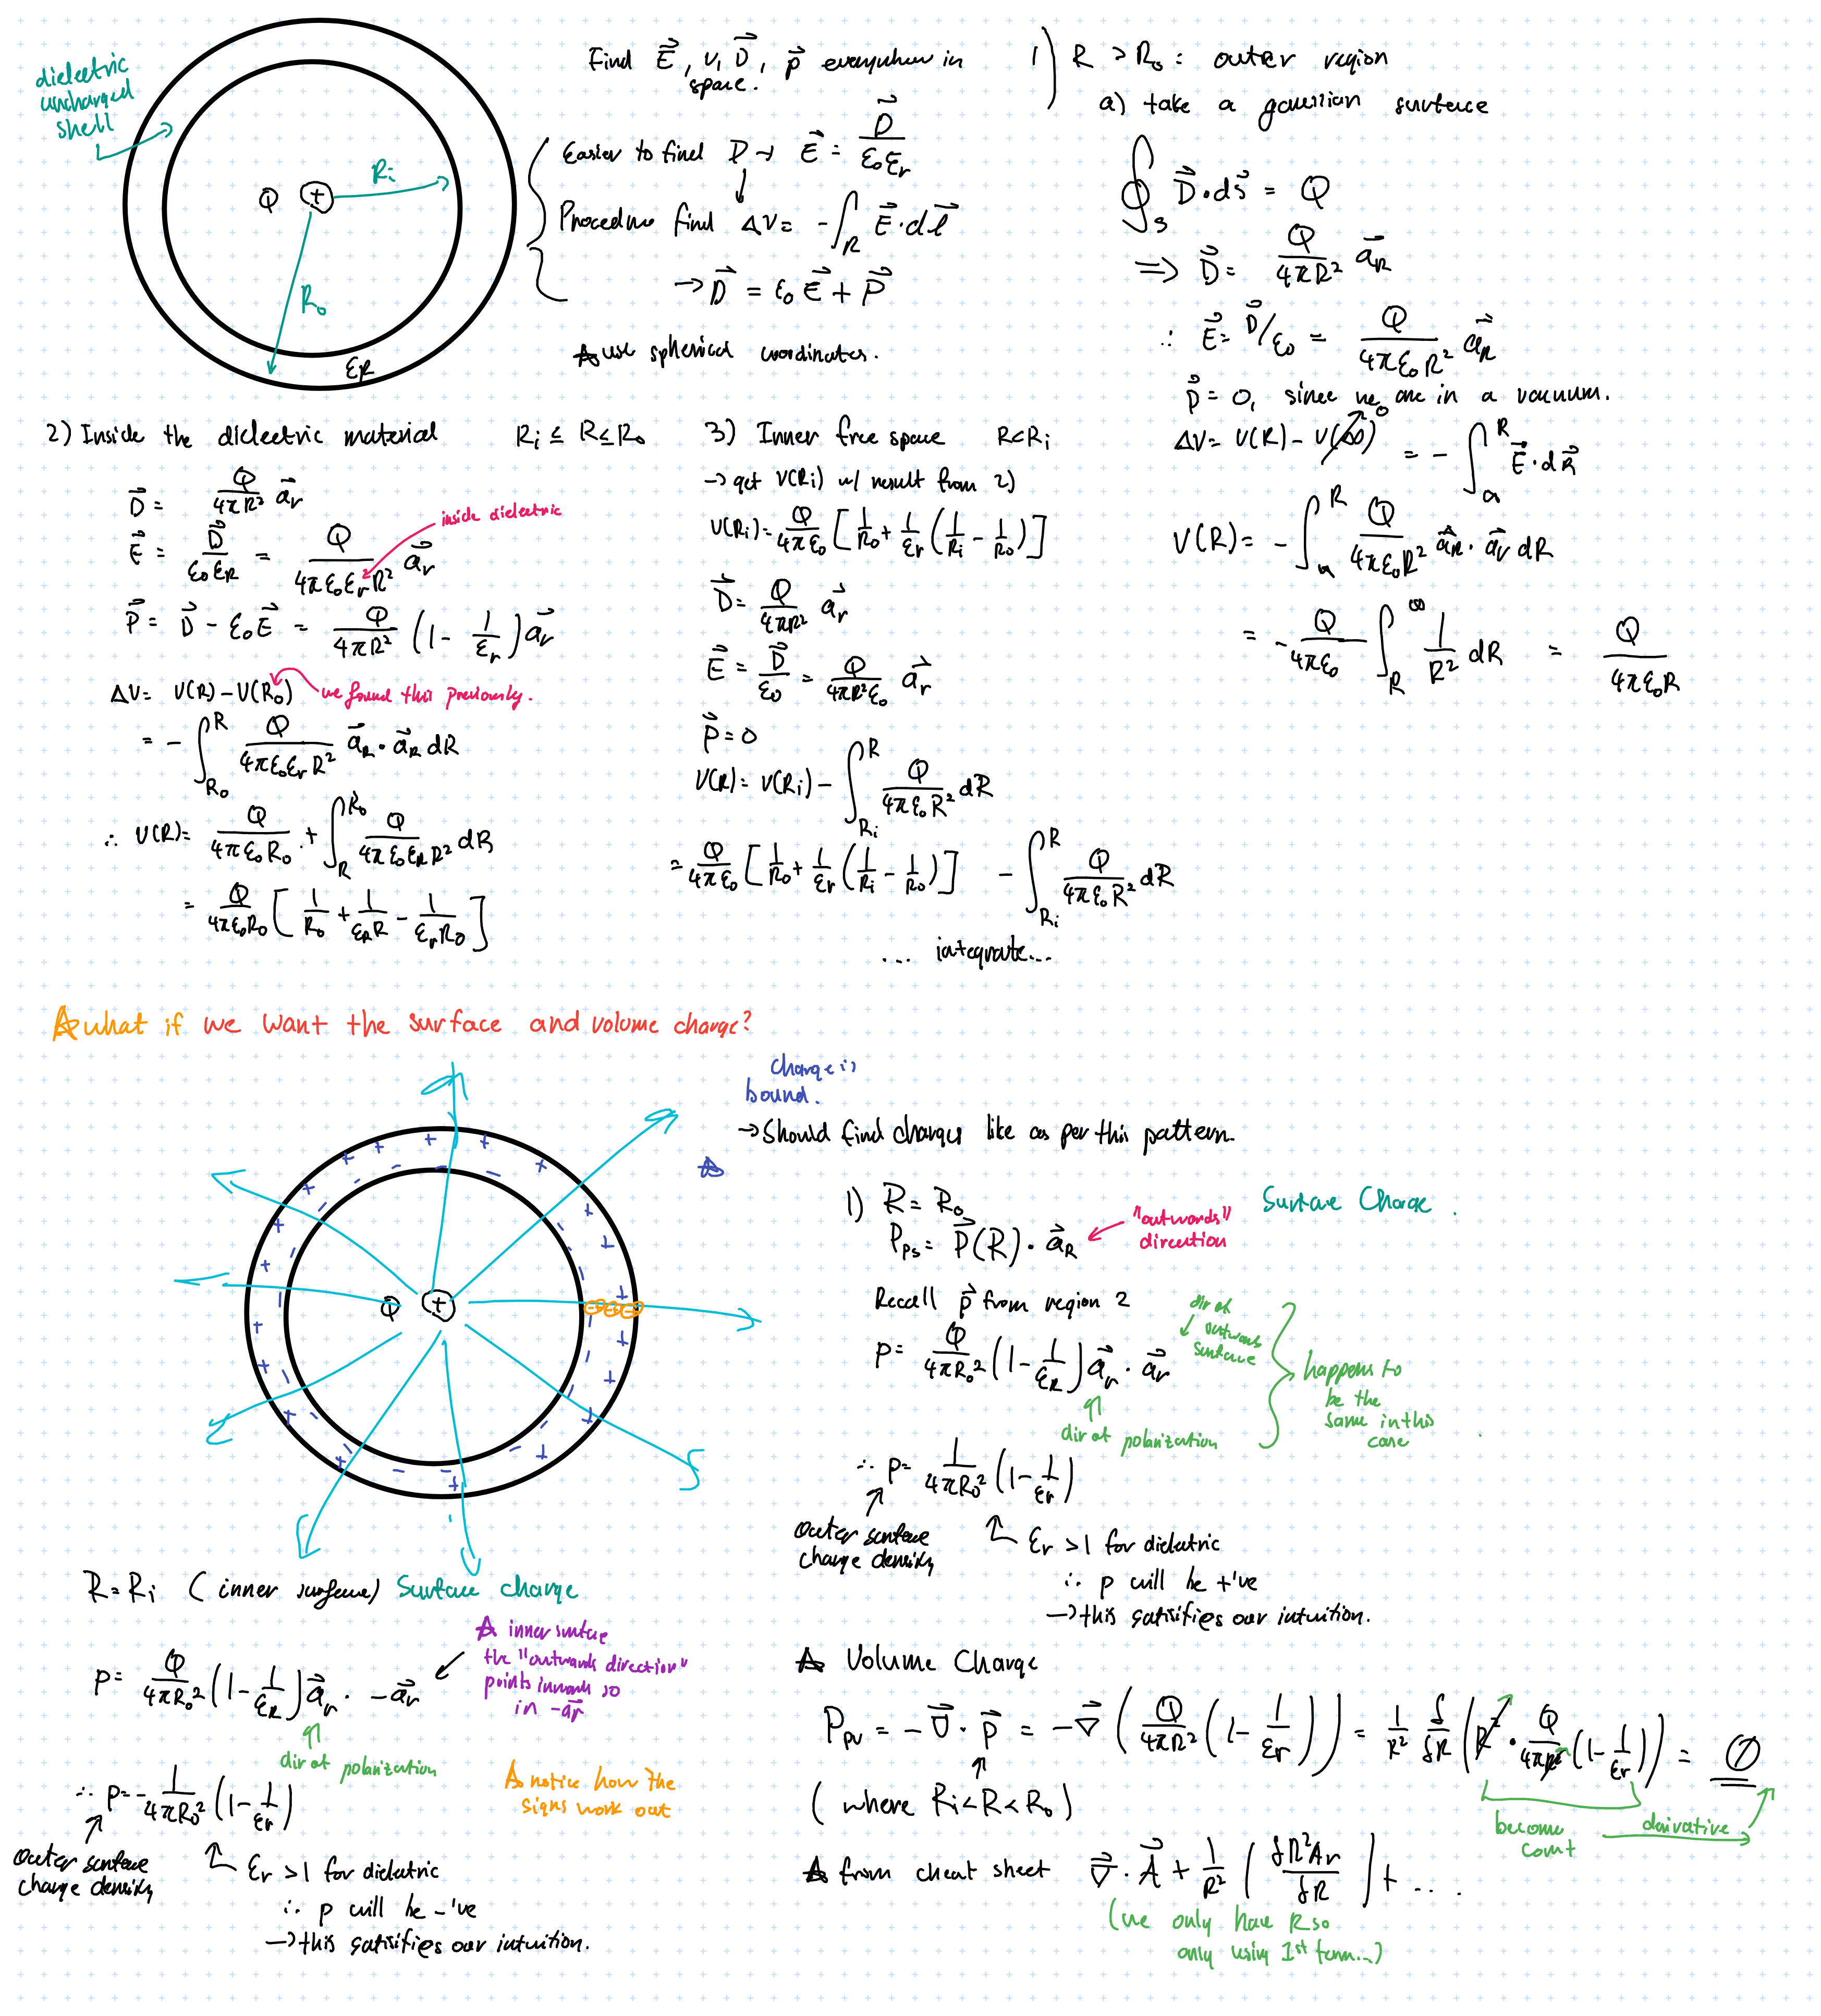 dielectric
uncharged
shell
Q
+
Ri
Ro
εR
Find E⃗, V, D⃗, P⃗ everywhere in
space.
Easier to find D → E⃗ = D⃗/(ε₀εr)
Procedure find ΔV = -∫_R E⃗·dl⃗
→ D⃗ = ε₀E⃗ + P⃗
☆ use spherical coordinates.
1) R > Ro : outer region
a) take a gaussian surface
∮_S D⃗·ds⃗ = Q
⇒ D⃗ = Q/(4πR²) a⃗R
∴ E⃗ = D⃗/ε₀ = Q/(4πε₀R²) a⃗R
P⃗ = 0, since we are in a vacuum.
ΔV = V(R) - V(∞)⁰ = -∫_∞^R E⃗·dR⃗
V(R) = -∫_∞^R Q/(4πε₀R²) a⃗R · a⃗r dR
= -Q/(4πε₀) ∫_R^∞ 1/R² dR = Q/(4πε₀R)
2) Inside the dielectric material Ri ≤ R ≤ Ro
D⃗ = Q/(4πR²) a⃗r
inside dielectric
E⃗ = D⃗/(ε₀εR) = Q/(4πε₀εr²R²) a⃗r
P⃗ = D⃗ - ε₀E⃗ = Q/(4πR²) (1 - 1/εr) a⃗r
ΔV = V(R) - V(Ro) we found this previously.
= -∫_Ro^R Q/(4πε₀εrR²) a⃗R · a⃗R dR
∴ V(R) = Q/(4πε₀Ro) + ∫_R^Ro Q/(4πε₀εRR²) dR
= Q/(4πε₀Ro) [1/Ro + 1/(εRR) - 1/(εrRo)]
3) Inner free space R<Ri
→ get V(Ri) w/ result from 2)
V(Ri) = Q/(4πε₀) [1/Ro + 1/εr (1/Ri - 1/Ro)]
D⃗ = Q/(4πR²) a⃗r
E⃗ = D⃗/ε₀ = Q/(4πR²ε₀) a⃗r
P⃗ = 0
V(R) = V(Ri) - ∫_Ri^R Q/(4πε₀R²) dR
= Q/(4πε₀) [1/Ro + 1/εr (1/Ri - 1/Ro)] - ∫_Ri^R Q/(4πε₀R²) dR
... integrate...
☆ what if we want the surface and volume charge?
Q
+
charge is
bound.
→ Should find charges like as per this pattern.
☆
1) R = Ro
Surface Charge.
Pps = P⃗(R) · a⃗R
"outwards"
direction
Recall P⃗ from region 2
P = Q/(4πRo²) (1 - 1/εR) a⃗r · a⃗r
dir of
outwards
surface
dir of polarization
happens to
be the
same in this
case
∴ P = 1/(4πRo²) (1 - 1/εr)
outer surface
charge density
εr > 1 for dielectric
∴ p will be +'ve
→ this satisfies our intuition.
R = Ri (inner surface) Surface charge
☆ inner surface
the "outwards direction"
points inwards so
in -a⃗r
P = Q/(4πRo²) (1 - 1/εR) a⃗r · -a⃗r
dir of polarization
∴ P = -1/(4πRo²) (1 - 1/εr)
☆ notice how the
signs work out
outer surface
charge density
εr > 1 for dielectric
∴ p will be -'ve
→ this satisfies our intuition.
☆ Volume Charge
Ppv = -∇⃗ · P⃗ = -∇⃗ (Q/(4πR²) (1 - 1/εr)) = 1/R² δ/δR (R² · Q/(4πR²) (1 - 1/εr)) = 0
(where Ri < R < Ro)
become
const
derivative
☆ from cheat sheet ∇⃗ · A⃗ + 1/R² (δR²Ar/δR) + ....
(we only have R so
only using 1st term...)